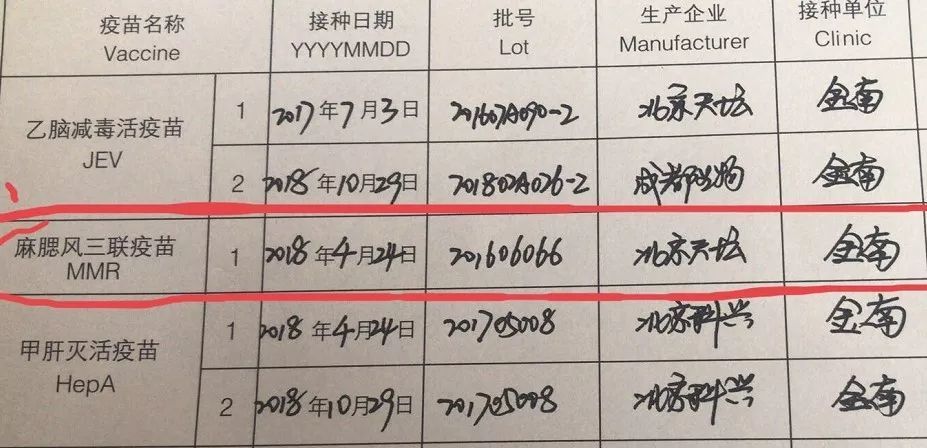 疫苗名称 接种日期 批号 生产企业 接种单位
Vaccine YYYYMMDD Lot Manufacturer Clinic
乙脑减毒活疫苗
JEV
1 2017年7月3日 201607A090-2 北京天坛 金南
2 2018年10月29日 201802A026-2 成都生物 金南
麻腮风三联疫苗
MMR
1 2018年4月24日 201606066 北京天坛 金南
甲肝灭活疫苗
HepA
1 2018年4月24日 201705008 北京科兴 金南
2 2018年10月29日 201705008 北京科兴 金南